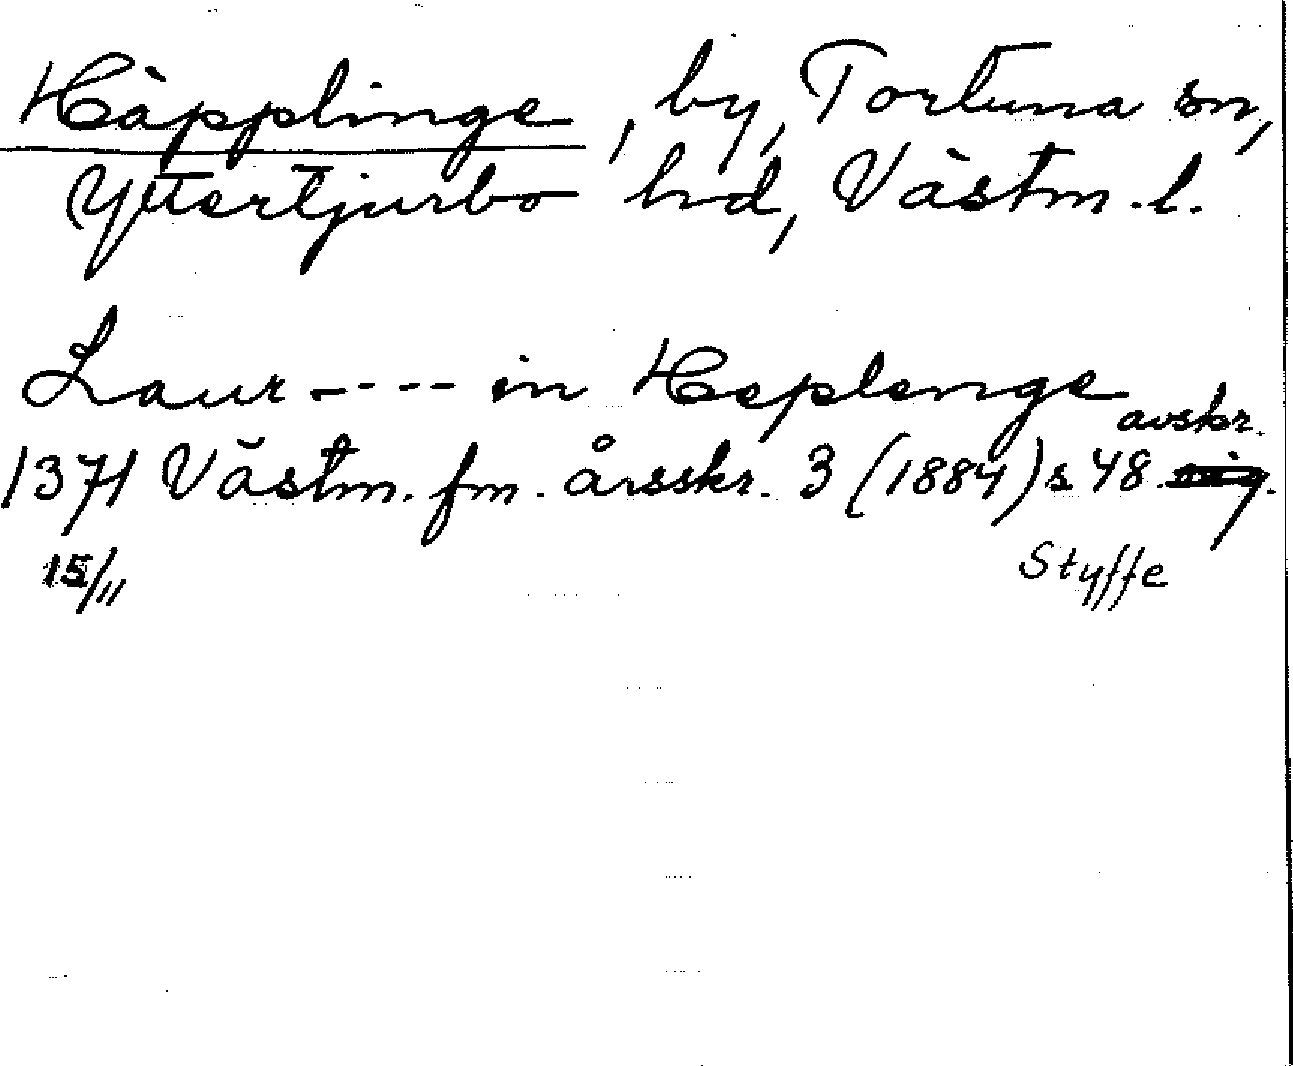 Häpplinge, by, Tortuna sn,
Yttertjurbo hd, Västm. l.
Laur---- in Heplenge
avskr.
1371 Västm. fm. årsskr. 3 (1884) s 48
15/11
Styffe